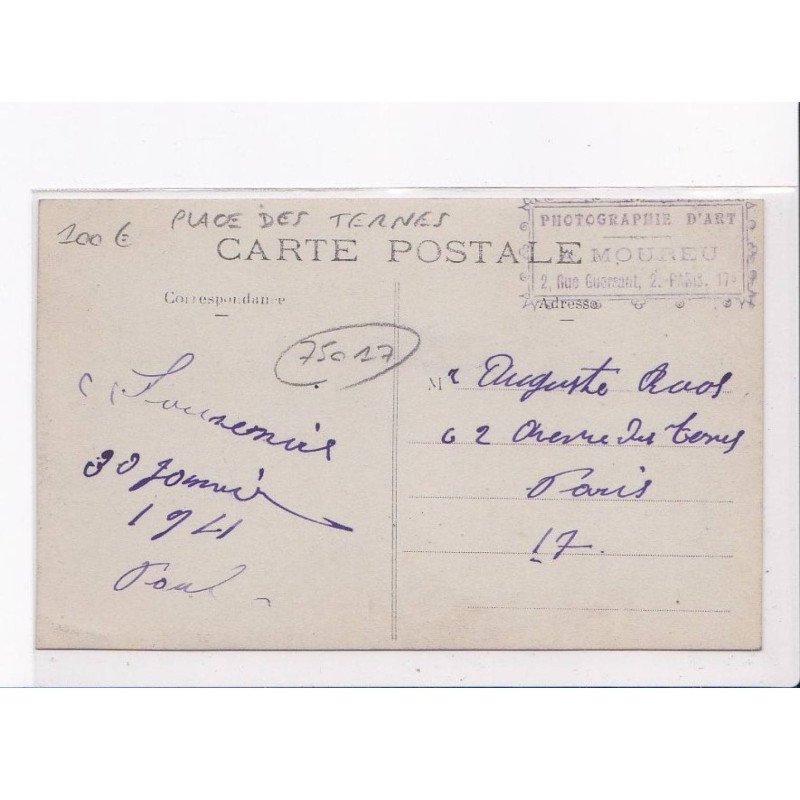 100 €
PLACE DES TERNES
CARTE POSTALE
PHOTOGRAPHIE D'ART
MOUREU
2, Rue Guersant, 2. PARIS. 17e
Correspondance
Adresse
75017
Souvenir
30 Janvier
1941
Paul
Mr Auguste
62 Avenue des Ternes
Paris
17.